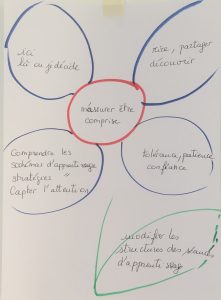 ici
là où je décide
rire, partager
découvrir
m'assurer être
comprise
Comprendre les
schémas d'apprentissage
stratégies "
Capter l'attention
tolérance, patience,
confiance
modifier les
structures des
d'apprentissage